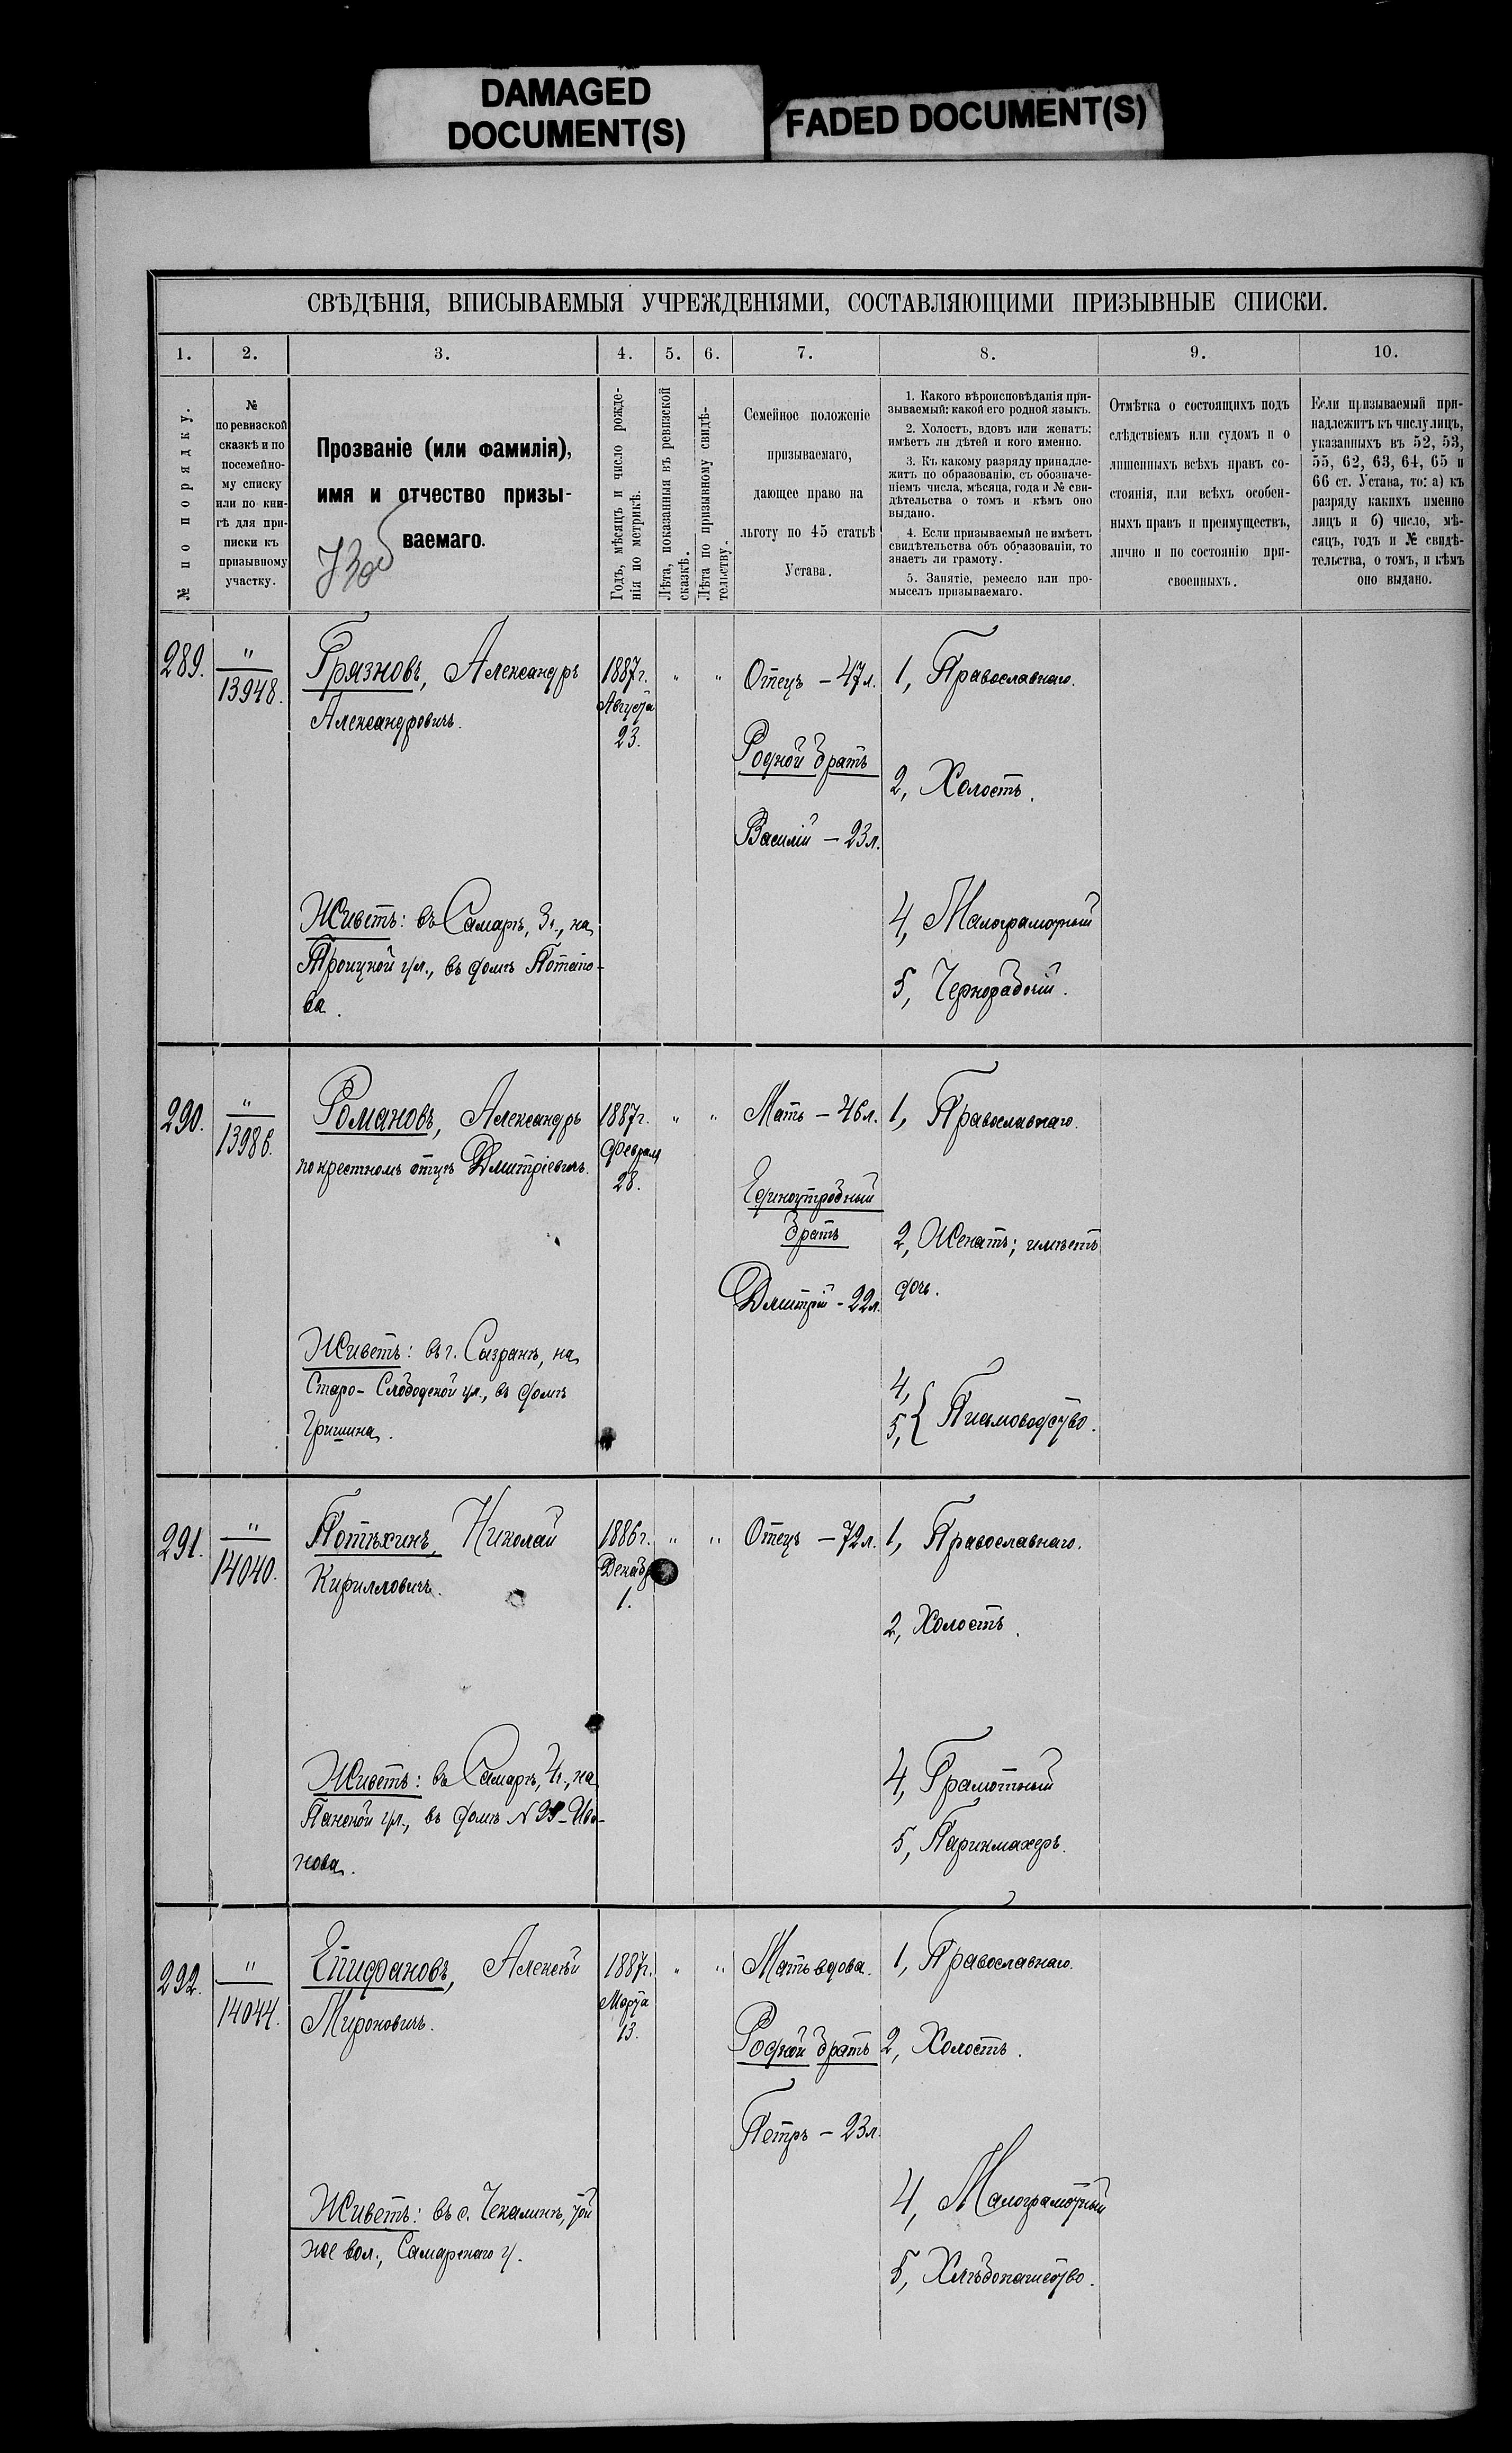 DAMAGED
DOCUMENT(S)
FADED DOCUMENT(S)
СВѢДѢНІЯ, ВПИСЫВАЕМЫЯ УЧРЕЖДЕНІЯМИ, СОСТАВЛЯЮЩИМИ ПРИЗЫВНЫЕ СПИСКИ.
1. 2. 3. 4. 5. 6. 7. 8. 9. 10.
№ по порядку.
№
по ревизской
сказкѣ и по
посемейно-
му списку
или по кни-
гѣ для при-
писки къ
призывному
участку.
Прозваніе (или фамилія),
имя и отчество призы-
ваемаго.
Годъ, мѣсяцъ и число рожде-
нія по метрикѣ.
Лѣта, показанныя въ ревизской
сказкѣ.
Лѣта по призывному свидѣ-
тельству.
Семейное положеніе
призываемаго,
дающее право на
льготу по 45 статьѣ
Устава.
1. Какого вѣроисповѣданія при-
зываемый: какой его родной языкъ.
2. Холостъ, вдовъ или женатъ;
имѣетъ ли дѣтей и кого именно.
3. Къ какому разряду принадле-
житъ по образованію, съ обозначе-
ніемъ числа, мѣсяца, года и № сви-
дѣтельства о томъ и кѣмъ оно
выдано.
4. Если призываемый не имѣетъ
свидѣтельства объ образованіи, то
знаетъ ли грамоту.
5. Занятіе, ремесло или про-
мыселъ призываемаго.
Отмѣтка о состоящихъ подъ
слѣдствіемъ или судомъ и о
лишенныхъ всѣхъ правъ со-
стоянія, или всѣхъ особен-
ныхъ правъ и преимуществъ,
лично и по состоянію при-
своенныхъ.
Если призываемый при-
надлежитъ къ числу лицъ,
указанныхъ въ 52, 53,
55, 62, 63, 64, 65 и
66 ст. Устава, то: а) къ
разряду какихъ именно
лицъ и б) число, мѣ-
сяцъ, годъ и № свидѣ-
тельства, о томъ, и кѣмъ
оно выдано.
289.
"
13948.
Грязновъ, Александръ
Александровичъ.
Живетъ: въ Самарѣ, 3 ч., на
Троицкой ул., въ домѣ Потапо-
ва.
1887 г.
Августа
23.
" "
Отецъ – 47 л.
Родной братъ
Василій – 23 л.
1, Православнаго.
2, Холостъ.
4, Малограмотный
5, Чернорабочій.
290.
"
13986.
Романовъ, Александръ
по крестномъ отцѣ Дмитріевичъ.
Живетъ: въ г. Сызранѣ, на
Старо-Слободской ул., въ домѣ
Гришина.
1887 г.
Февраля
28.
" "
Мать – 46 л.
Единоутробный
братъ
Дмитрій – 22 л.
1, Православнаго.
2, Женатъ; имѣетъ
дочь.
4,
5, { Письмоводство.
291.
"
14040.
Потѣхинъ, Николай
Кирилловичъ.
Живетъ: въ Самарѣ, 4 ч., на
Панской ул., въ домѣ Ива-
нова.
1886 г.
Декабр
1.
" "
Отецъ – 72 л.
1, Православнаго.
2, Холостъ.
4, Грамотный
5, Парикмахеръ.
292.
"
14044.
Епифановъ, Алексѣй
Мироновичъ.
Живетъ: въ с. Чекалинѣ, той
же вол., Самарскаго у.
1887 г.
Марта
13.
" "
Мать вдова.
Родной братъ
Петръ – 23 л.
1, Православнаго.
2, Холостъ.
4, Малограмотный
5, Хлѣбопашество.